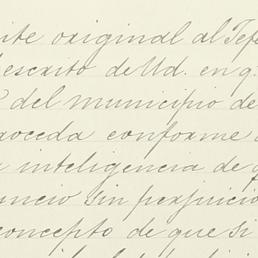 ite original al Tefe
escrito de Ud. en q.
del municipio de
roceda conforme
inteligencia de
uncio sin perjuicio
concepto de que si